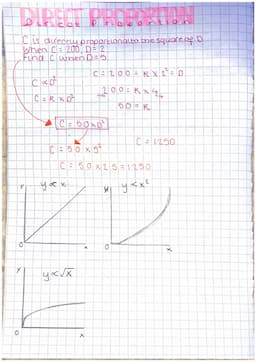 DIRECT PROPORTION
C is directly proportional to the square of D.
When C = 200, D = 2
Find C when D = 5.
C ∝ D²
C = K × D²
C = 200 = K × 2² = D
200 = K × 4
50 = K
C = 50 × D²
C = 50 × 5²
C = 50 × 25 = 1250
C = 1250
y ∝ x
y
0
x
y ∝ x²
y
0
x
y ∝ √x
y
0
x